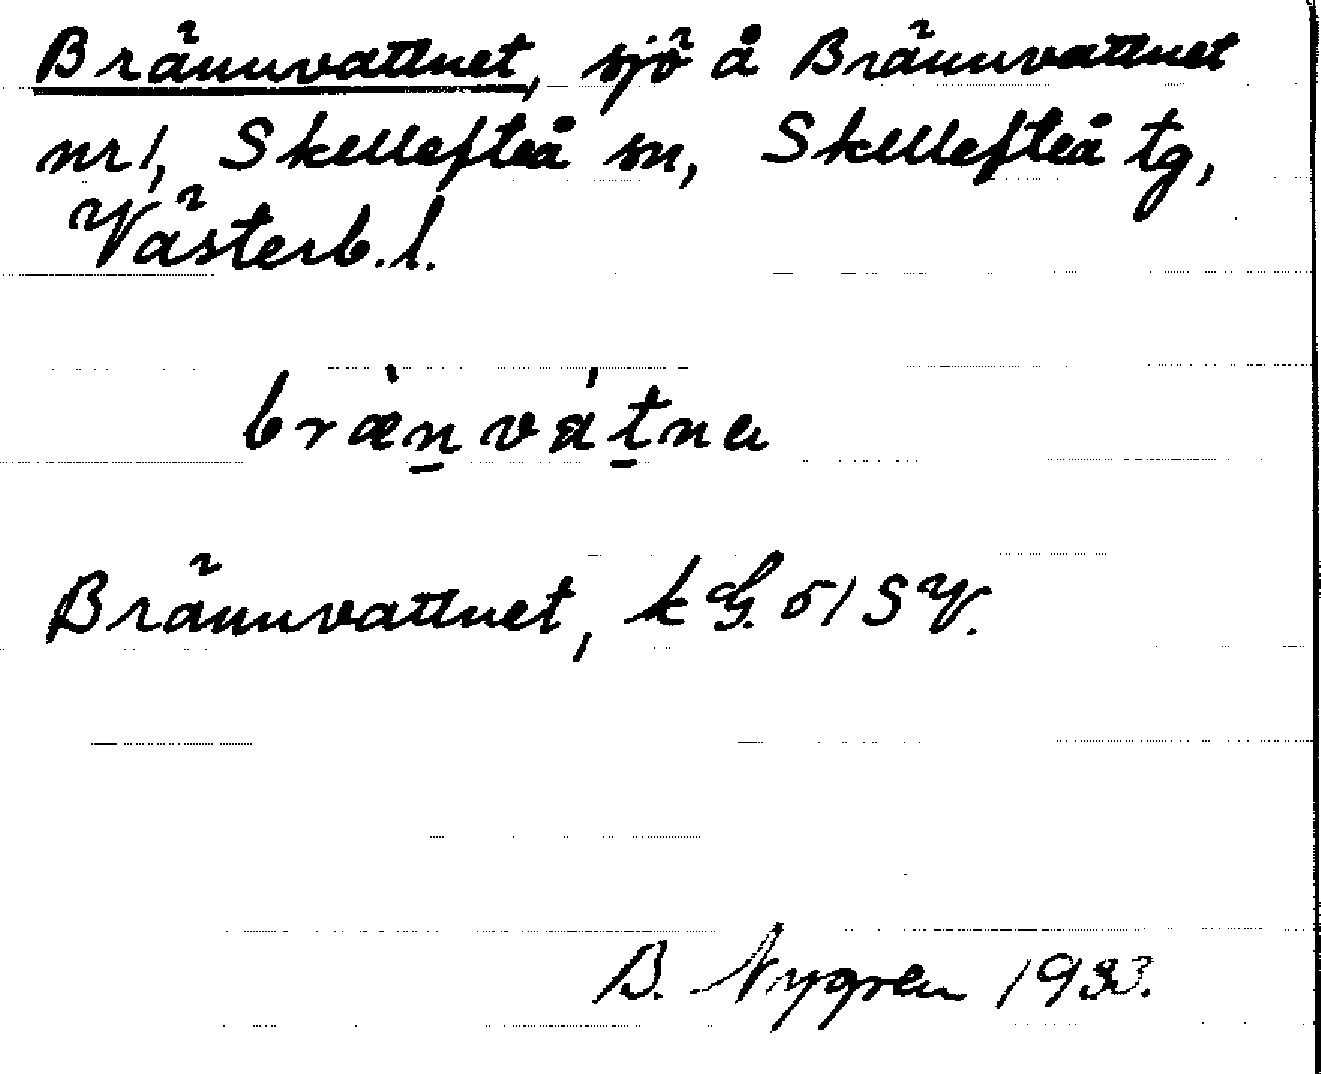 Brännvattnet, sjö å Brännvattnet
nr 1, Skellefteå sn, Skellefteå tg,
Västerb. l.
bræ̀n̲vát̲na
Brännvattnet, k G. 51 SV.
B. Nygren 1933.